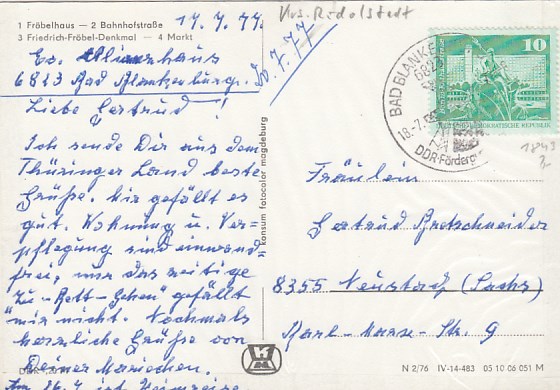 1 Fröbelhaus — 2 Bahnhofstraße
3 Friedrich-Fröbel-Denkmal — 4 Markt
17.7.77.
Krs. Rudolstadt
20.7.77
6823 Bad Blankenburg.
Liebe Gertrud!
Ich sende Dir aus dem
Thüringer Land beste
Grüße. Mir gefällt es
gut. Wohnung u. Ver-
pflegung sind einwand-
frei, nur das zeitige
"Zu-Bett-Gehen" gefällt
mir nicht. Nochmals
herzliche Grüße von
Deiner Mariechen.
Am 26.7. ist Heimreise
konsum fotocolor magdeburg
BAD BLANKE
6823
18.-7.
DDR-Förderg
10
DEMOKRATISCHE REPUBLIK
1843
Fräulein
Gertrud Bretschneider
8355 Neustadt (Sachs)
Karl-Marx-Str. 9
N 2/76 IV-14-483 05 10 06 051 M